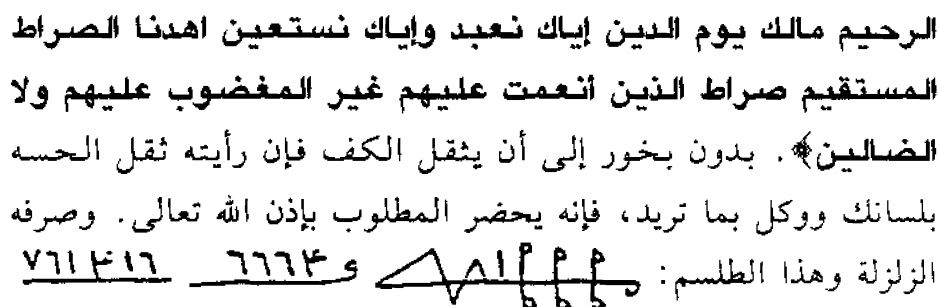 الرحيم مالك يوم الدين إياك نعبد وإياك نستعين اهدنا الصراط
المستقيم صراط الذين أنعمت عليهم غير المغضوب عليهم ولا
الضالين﴾. بدون بخور إلى أن يثقل الكف فإن رأيته ثقل الحسه
بلسانك ووكل بما تريد، فإنه يحضر المطلوب بإذن الله تعالى. وصرفه
الزلزلة وهذا الطلسم: